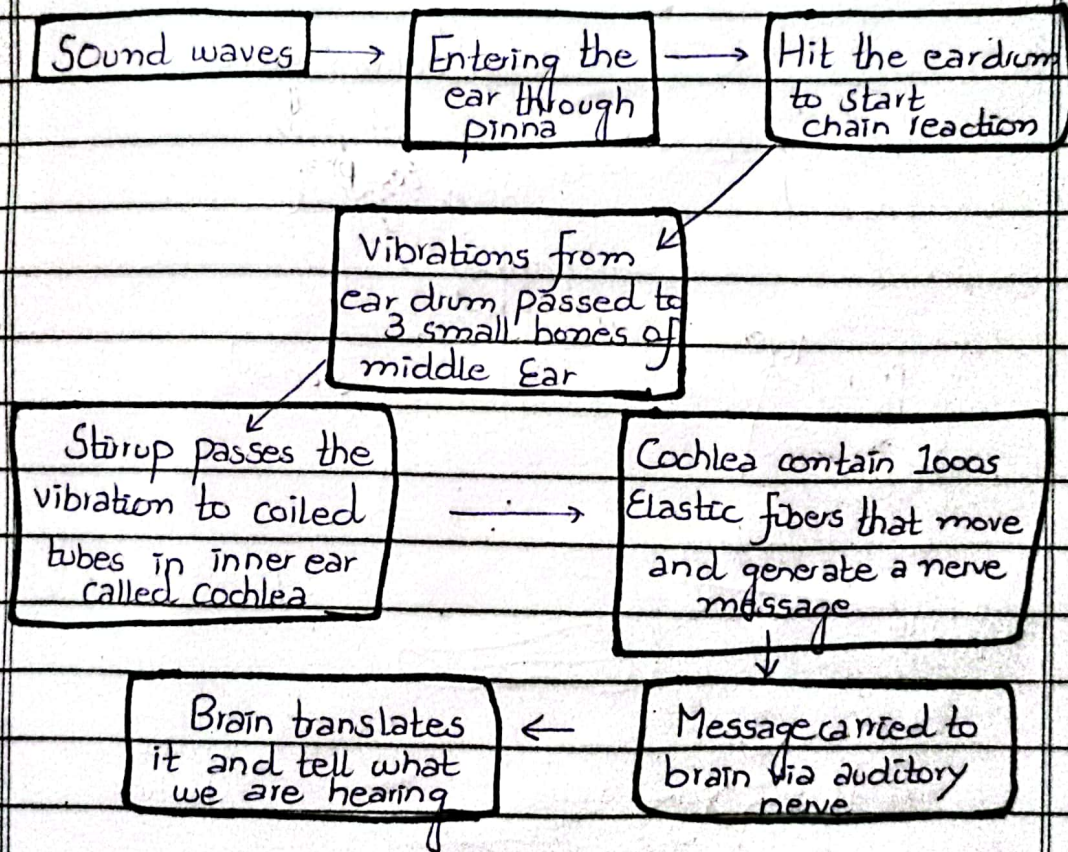 Sound waves
Entering the
ear through
pinna
Hit the eardrum
to start
chain reaction
Vibrations from
ear drum passed to
3 small bones of
middle Ear
Stirrup passes the
vibration to coiled
tubes in inner ear
called Cochlea
Cochlea contain 1000s
Elastic fibers that move
and generate a nerve
message
Message carried to
brain via auditory
nerve
Brain translates
it and tell what
we are hearing